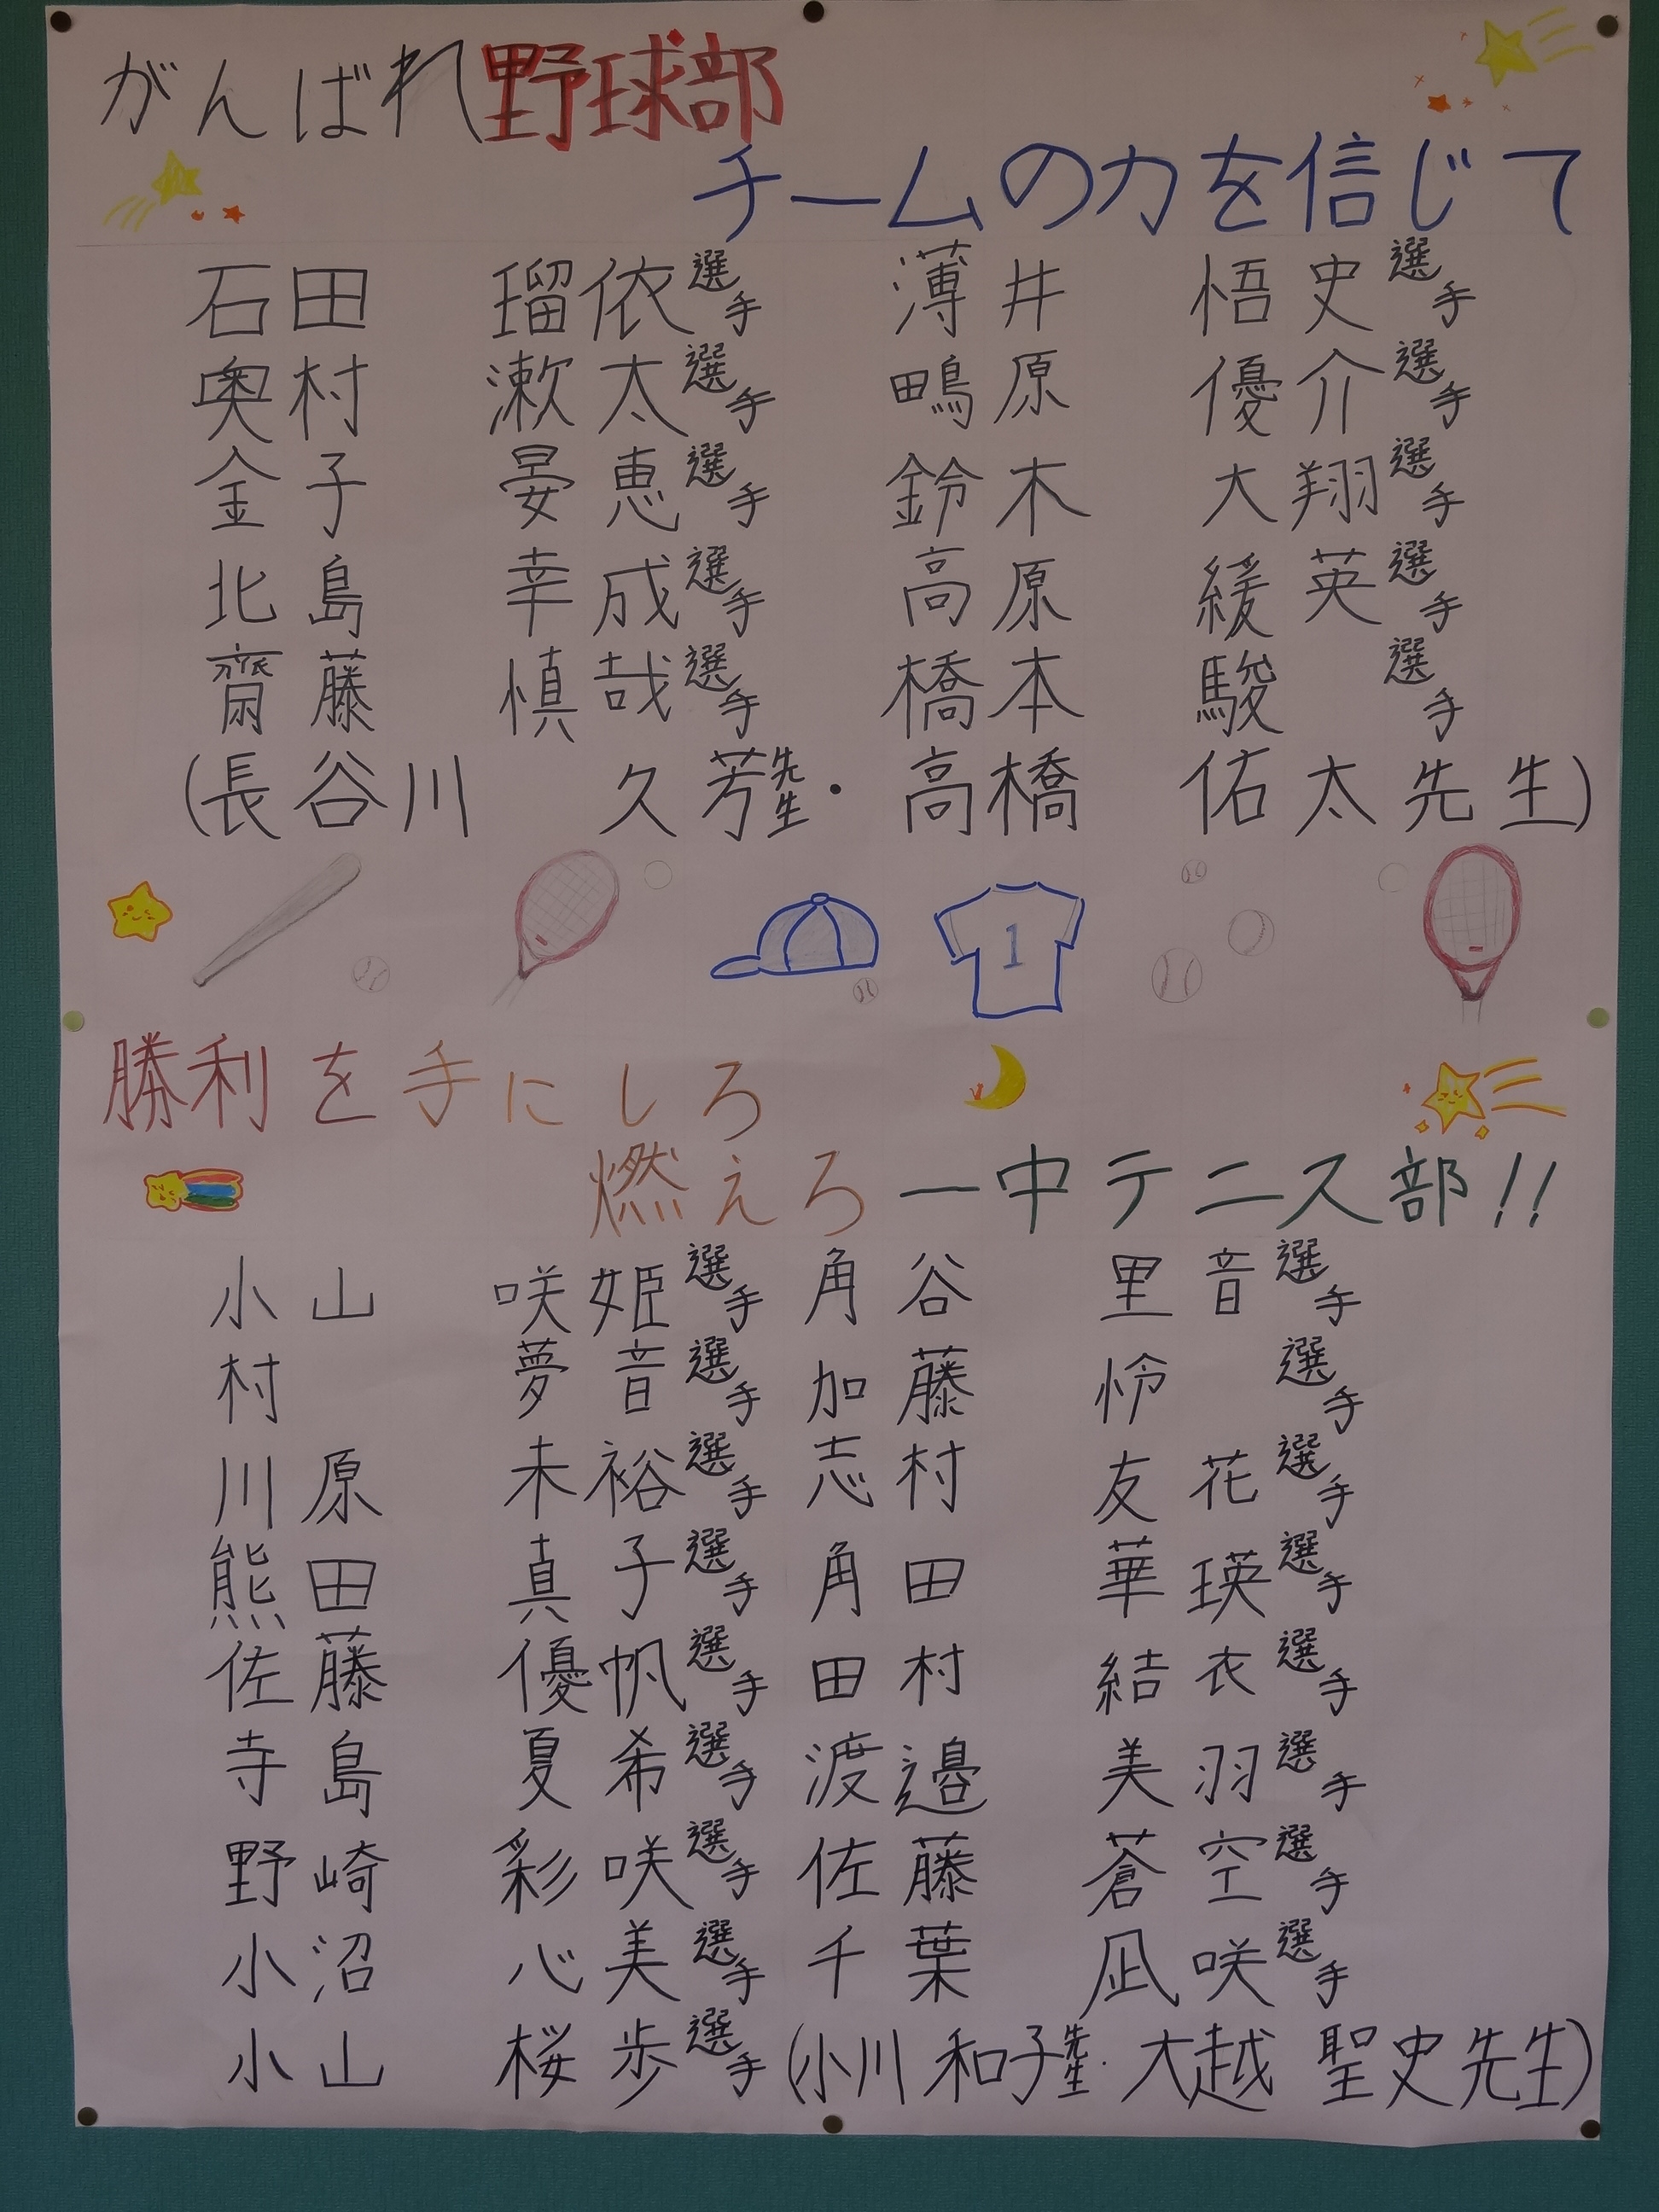 がんばれ野球部
チームの力を信じて
石田 瑠依選手 薄井 悟史選手
奥村 漱太選手 鴫原 優介選手
金子 晏恵選手 鈴木 大翔選手
北島 幸成選手 高原 緩英選手
齋藤 慎哉選手 橋本 駿選手
(長谷川 久芳先生・高橋 佑太先生)
1
勝利を手にしろ
燃えろ一中テニス部!!
小山 咲姫選手 角谷 里音選手
村 夢音選手 加藤 怜選手
川原 未裕選手 志村 友花選手
熊田 真子選手 角田 華瑛選手
佐藤 優帆選手 田村 結衣選手
寺島 夏希選手 渡邉 美羽選手
野崎 彩咲選手 佐藤 蒼空選手
小沼 心美選手 千葉 凪咲選手
小山 桜歩選手 (小川 和子先生・大越 聖史先生)